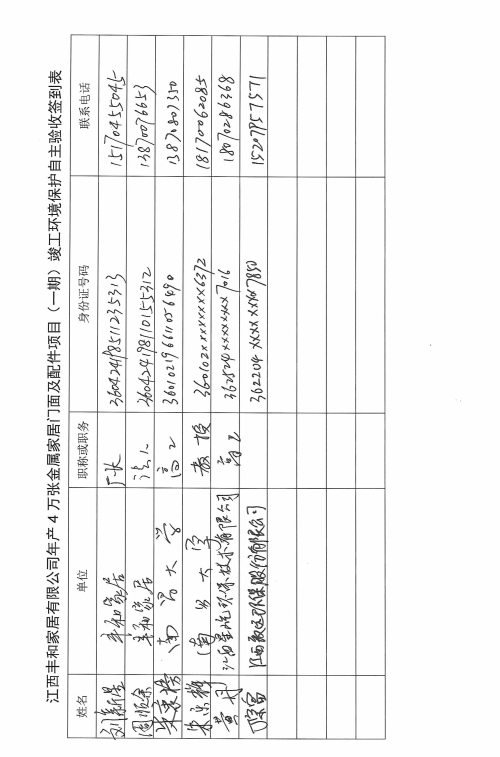 江西丰和家居有限公司年产4万张金属家居门面及配件项目（一期）竣工环境保护自主验收签到表
姓名 单位 职称或职务 身份证号码 联系电话
刘新星 丰和家居 厂长 360424198511235313 15170455045
周恢余 丰和家居 法人 360424198110155312 13870076653
南昌大学 高工 360102196611056490 13870807350
南昌大学 教授 360102xxxxxxxx6372 18170062085
黄丹 高工 362524xxxxxxxx7016 18070286368
362204xxxxxxxx7850 15207957571